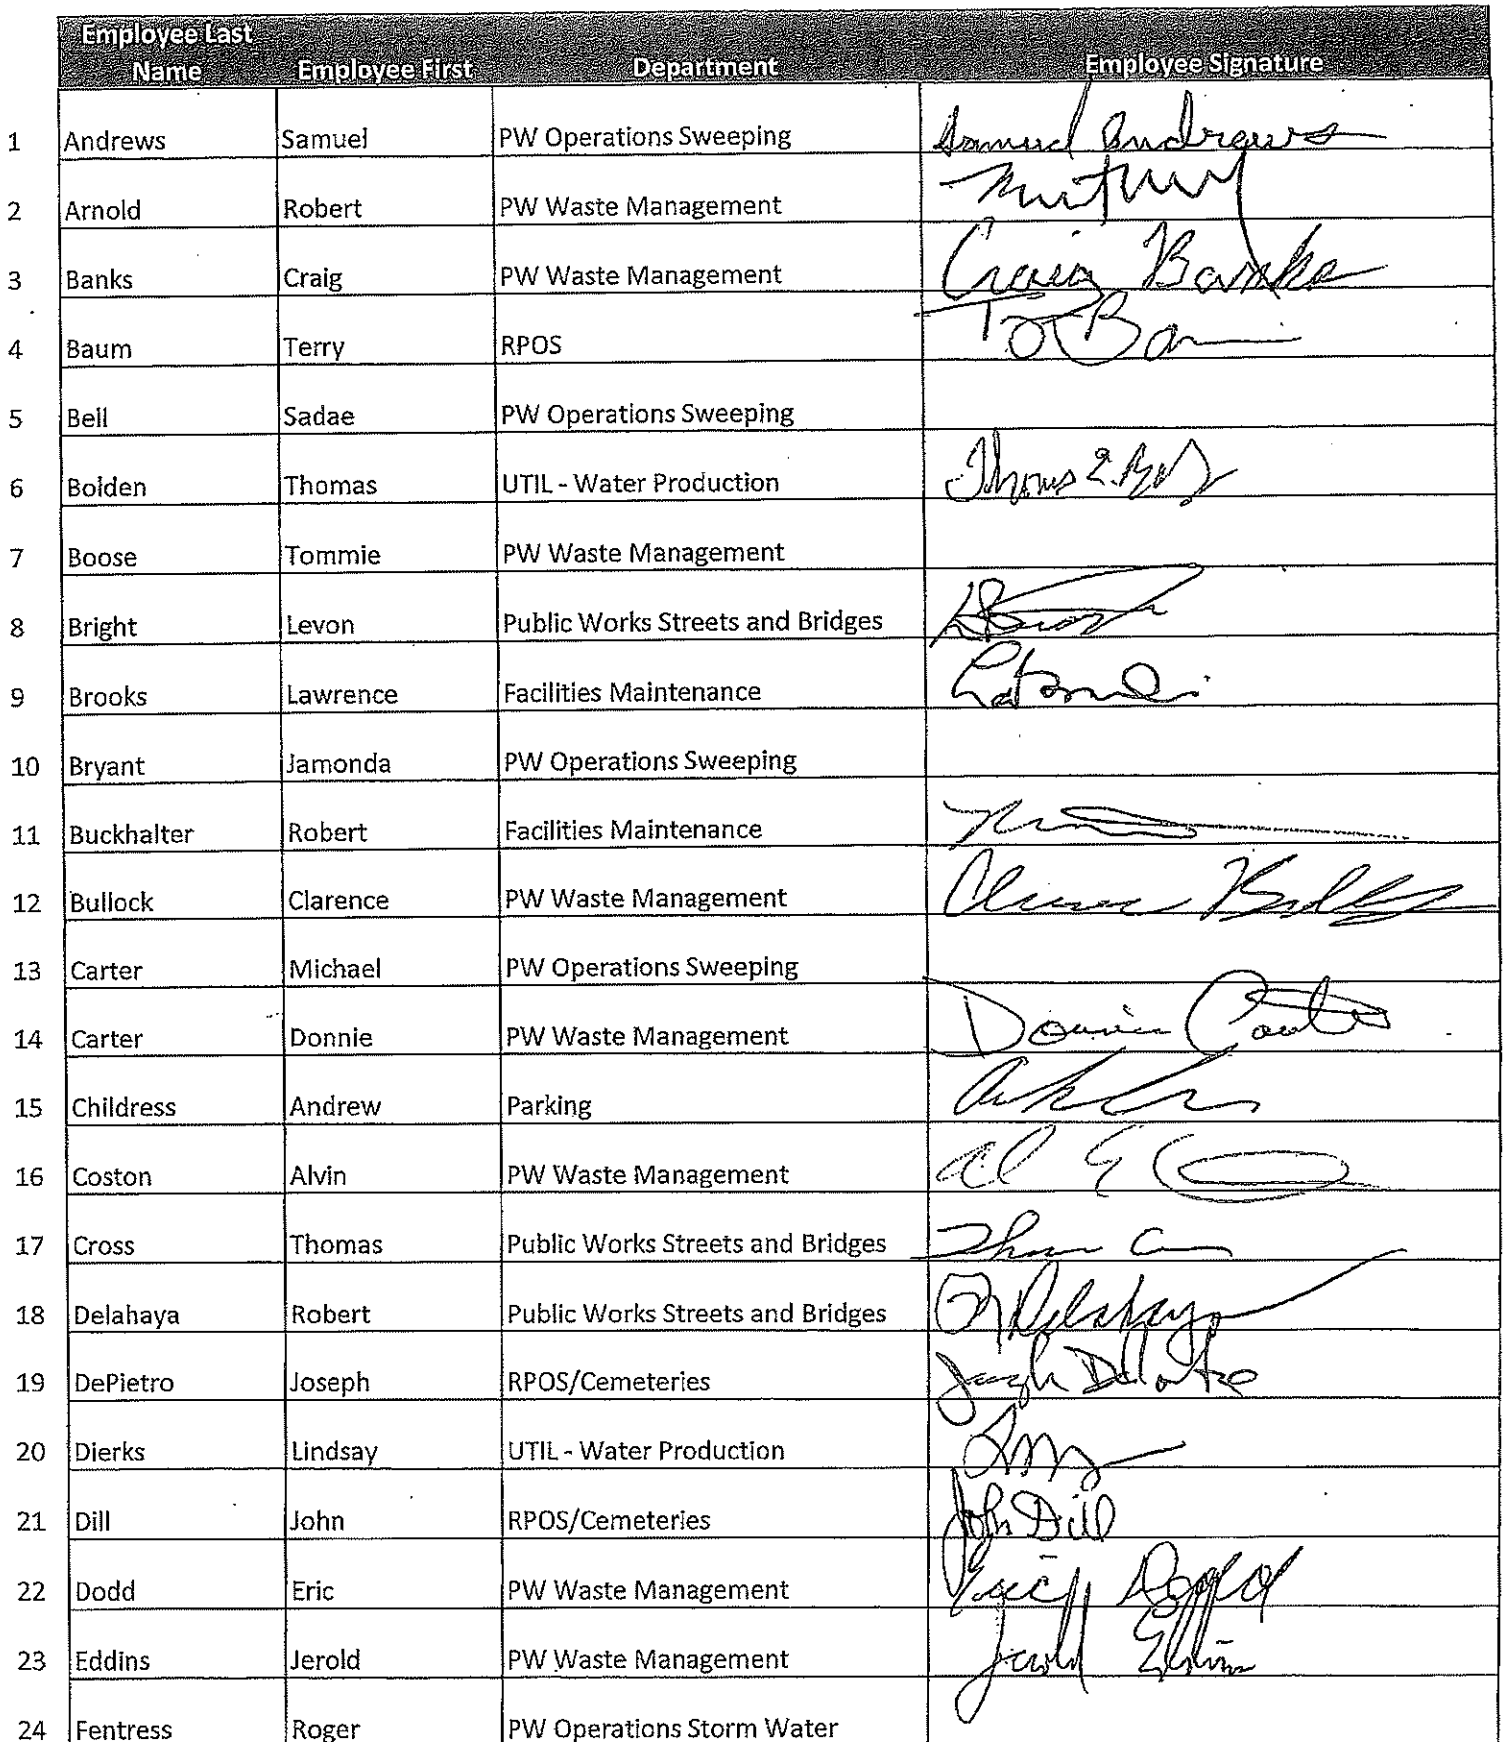 Employee Last Name Employee First Department Employee Signature
1 Andrews Samuel PW Operations Sweeping Samuel Andrews
2 Arnold Robert PW Waste Management
3 Banks Craig PW Waste Management Craig Banks
4 Baum Terry RPOS
5 Bell Sadae PW Operations Sweeping
6 Bolden Thomas UTIL - Water Production Thomas
7 Boose Tommie PW Waste Management
8 Bright Levon Public Works Streets and Bridges
9 Brooks Lawrence Facilities Maintenance
10 Bryant Jamonda PW Operations Sweeping
11 Buckhalter Robert Facilities Maintenance
12 Bullock Clarence PW Waste Management
13 Carter Michael PW Operations Sweeping
14 Carter Donnie PW Waste Management Donnie Carter
15 Childress Andrew Parking
16 Coston Alvin PW Waste Management
17 Cross Thomas Public Works Streets and Bridges
18 Delahaya Robert Public Works Streets and Bridges
19 DePietro Joseph RPOS/Cemeteries Joseph
20 Dierks Lindsay UTIL - Water Production
21 Dill John RPOS/Cemeteries John Dill
22 Dodd Eric PW Waste Management Eric Dodd
23 Eddins Jerold PW Waste Management Jerold Eddins
24 Fentress Roger PW Operations Storm Water